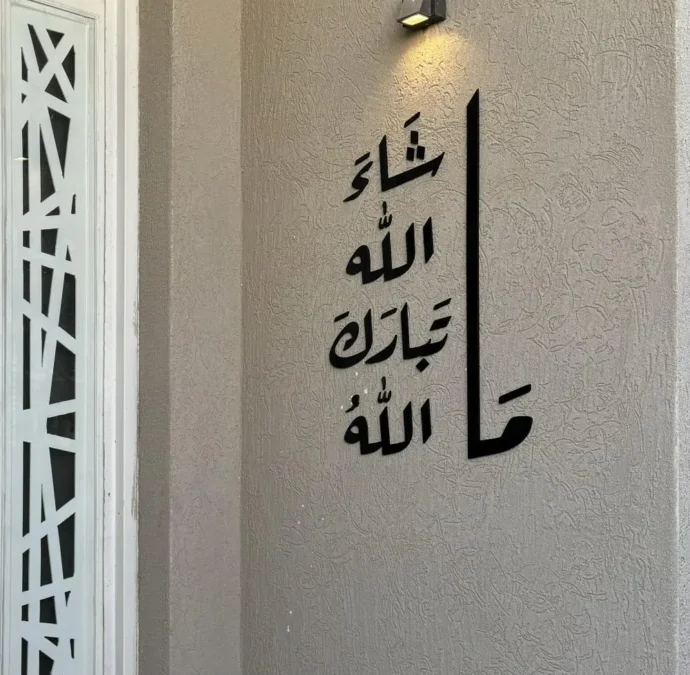 مَا
شَاءَ
الله
تَبَارَكَ
اللهُ